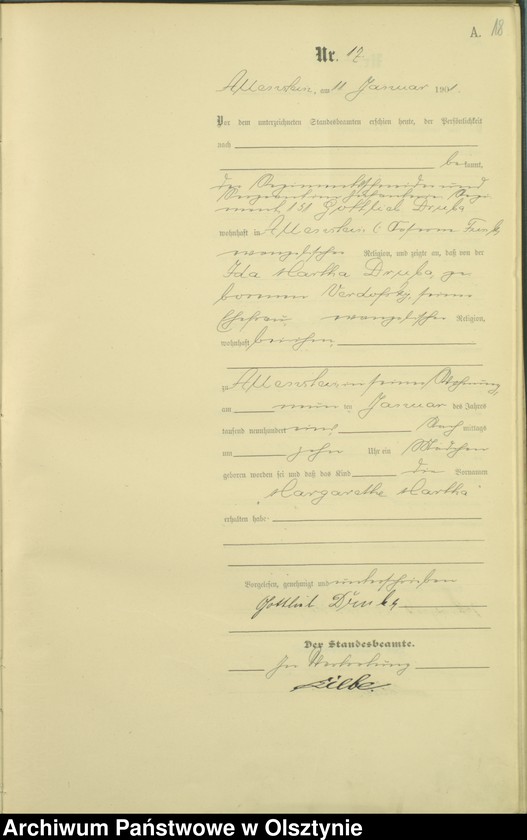 A. 18
Nr. 17
Allenstein, am 11 Januar 1901.
Vor dem unterzeichneten Standesbeamten erschien heute, der Persönlichkeit
nach
bekannt,
der Regimentsschneider und
Sergeant im Infanterie Regi-
ment 151 Gottlieb Druba
wohnhaft in Allenstein
evangelischer Religion, und zeigte an, daß von der
Ida Martha Druba, ge-
borenen seiner
Ehefrau, evangelischer Religion,
wohnhaft bei ihm,
zu Allenstein in seiner Wohnung,
am neun ten Januar des Jahres
tausend neunhundert eins Nach mittags
um zehn Uhr ein Mädchen
geboren worden sei und daß das Kind die Vornamen
Margarethe Martha
erhalten habe
Vorgelesen, genehmigt und unterschrieben
Gottlieb Druba
Der Standesbeamte.
In Vertretung
Archiwum Państwowe w Olsztynie